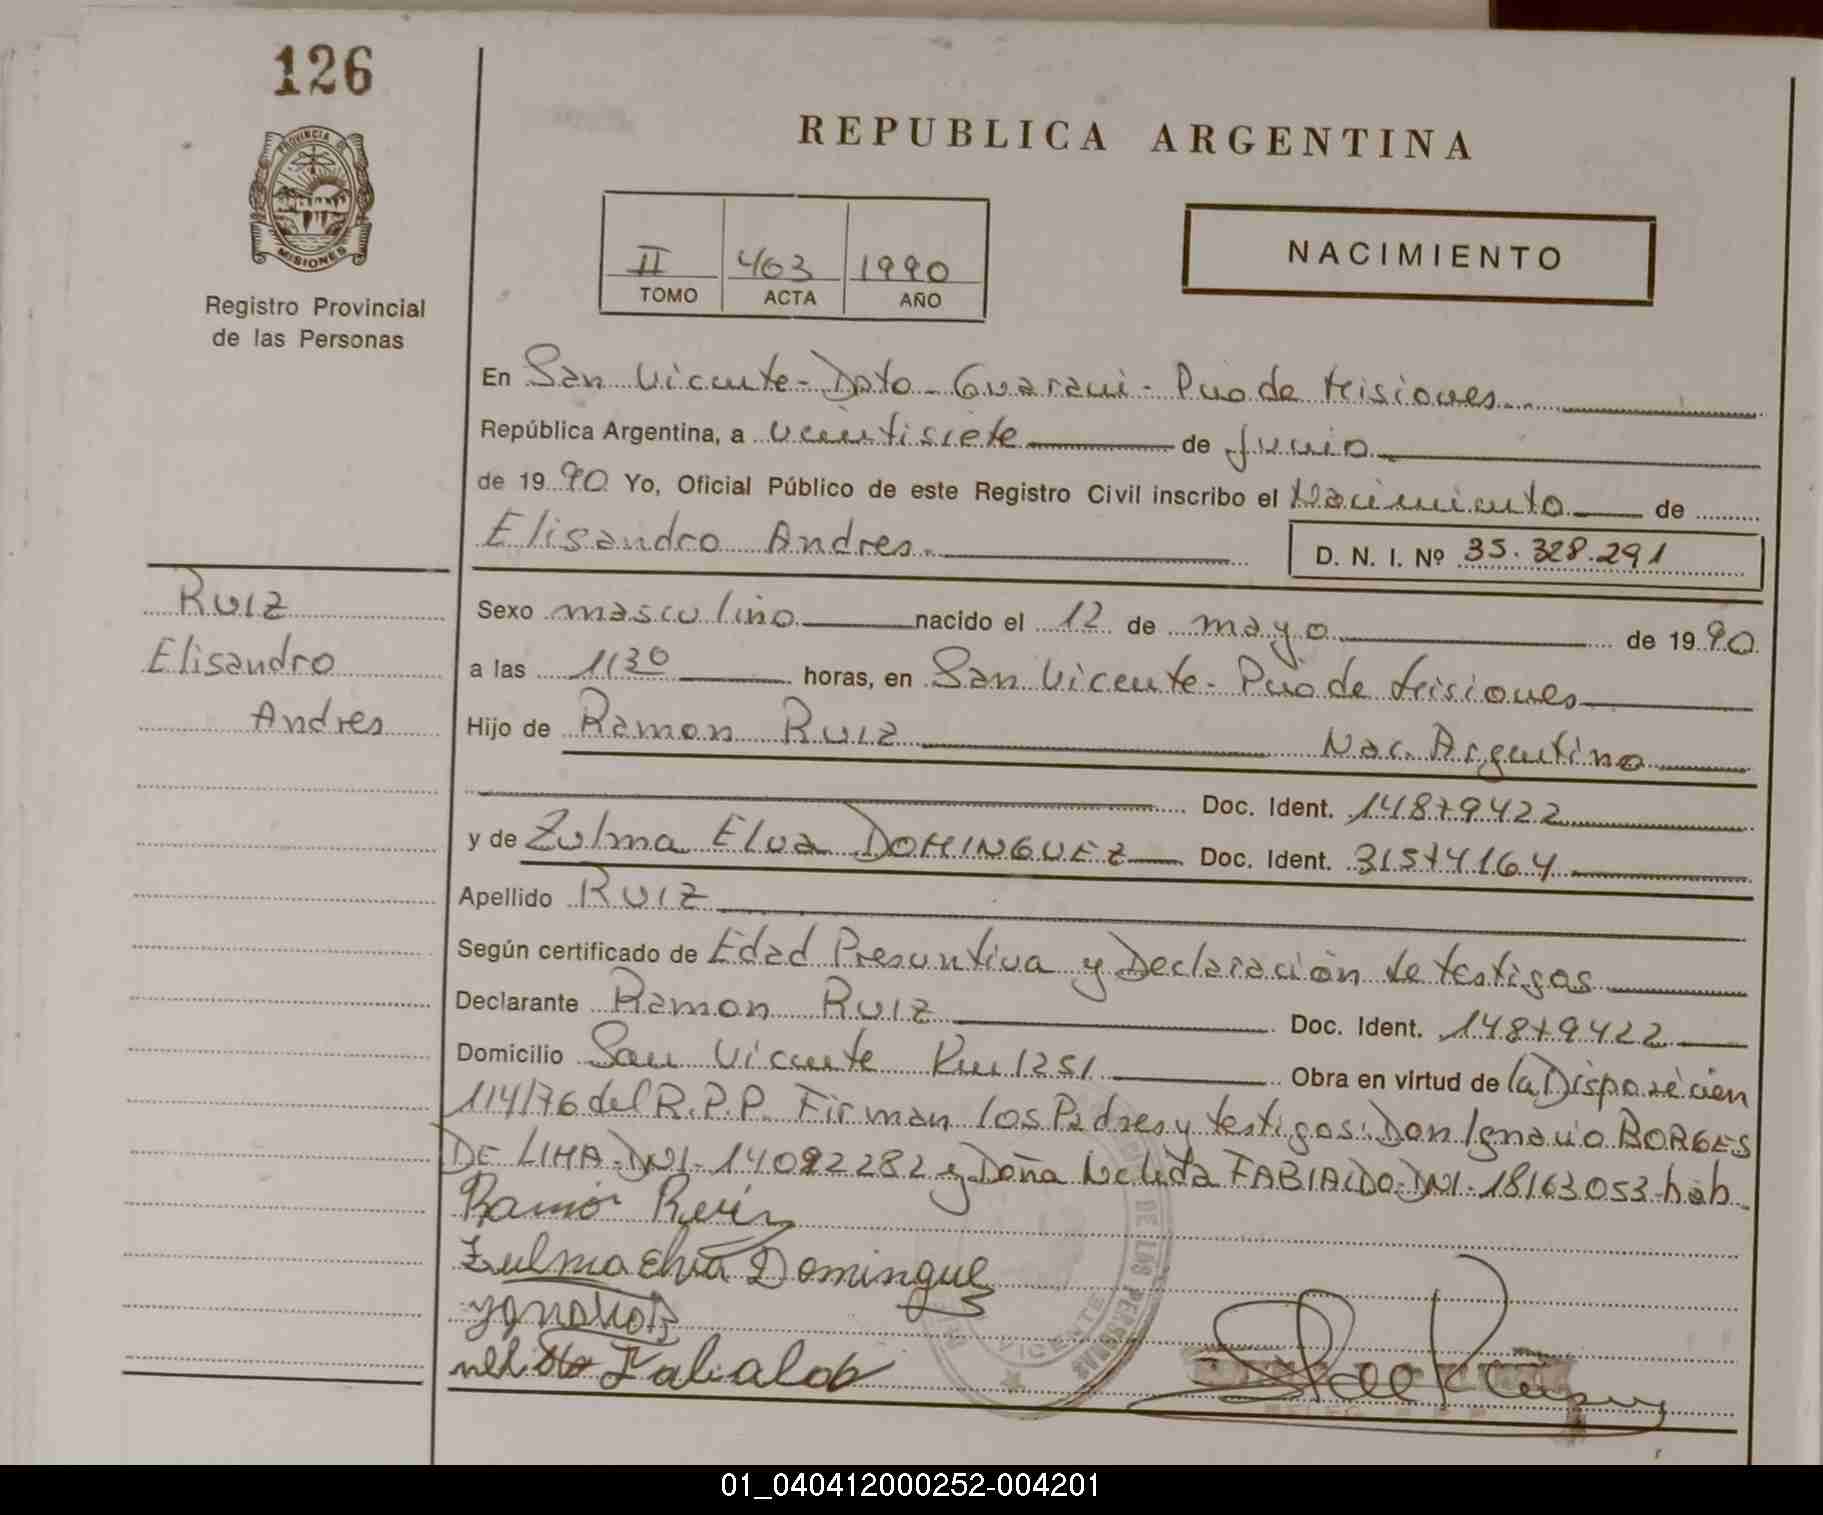 126
REPUBLICA ARGENTINA
PROVINCIA DE
MISIONES
Registro Provincial
de las Personas
II 403 1990
TOMO ACTA AÑO
NACIMIENTO
En San Vicente - Dpto - Guarani - Pcio de Misiones
República Argentina, a veintisiete de Junio
de 1990 Yo, Oficial Público de este Registro Civil inscribo el Nacimiento de
Elisandro Andres.
D. N. I. Nº 35.328.291
Ruiz
Elisandro
Andres
Sexo masculino nacido el 12 de mayo de 1990
a las 1130 horas, en San Vicente - Pcio de Misiones
Hijo de Ramon Ruiz Nac. Argentino
Doc. Ident. 14879422
y de Zulma Elva DOMINGUEZ Doc. Ident. 31574164
Apellido Ruiz
Según certificado de Edad Presuntiva y Declaración de testigos
Declarante Ramon Ruiz Doc. Ident. 14879422
Domicilio San Vicente Km 1251 Obra en virtud de la Disposición
114/76 del R.P.P. Firman los Padres y testigos: Don Ignacio BORGES
DE LIMA - DNI - 14092282 y Doña Nelida FABIALDO - DNI - 18163053 - hab.
Ramó Ruiz
Zulma Elva Domingue
DE LAS PERSONAS
VICENTE
01_040412000252-004201